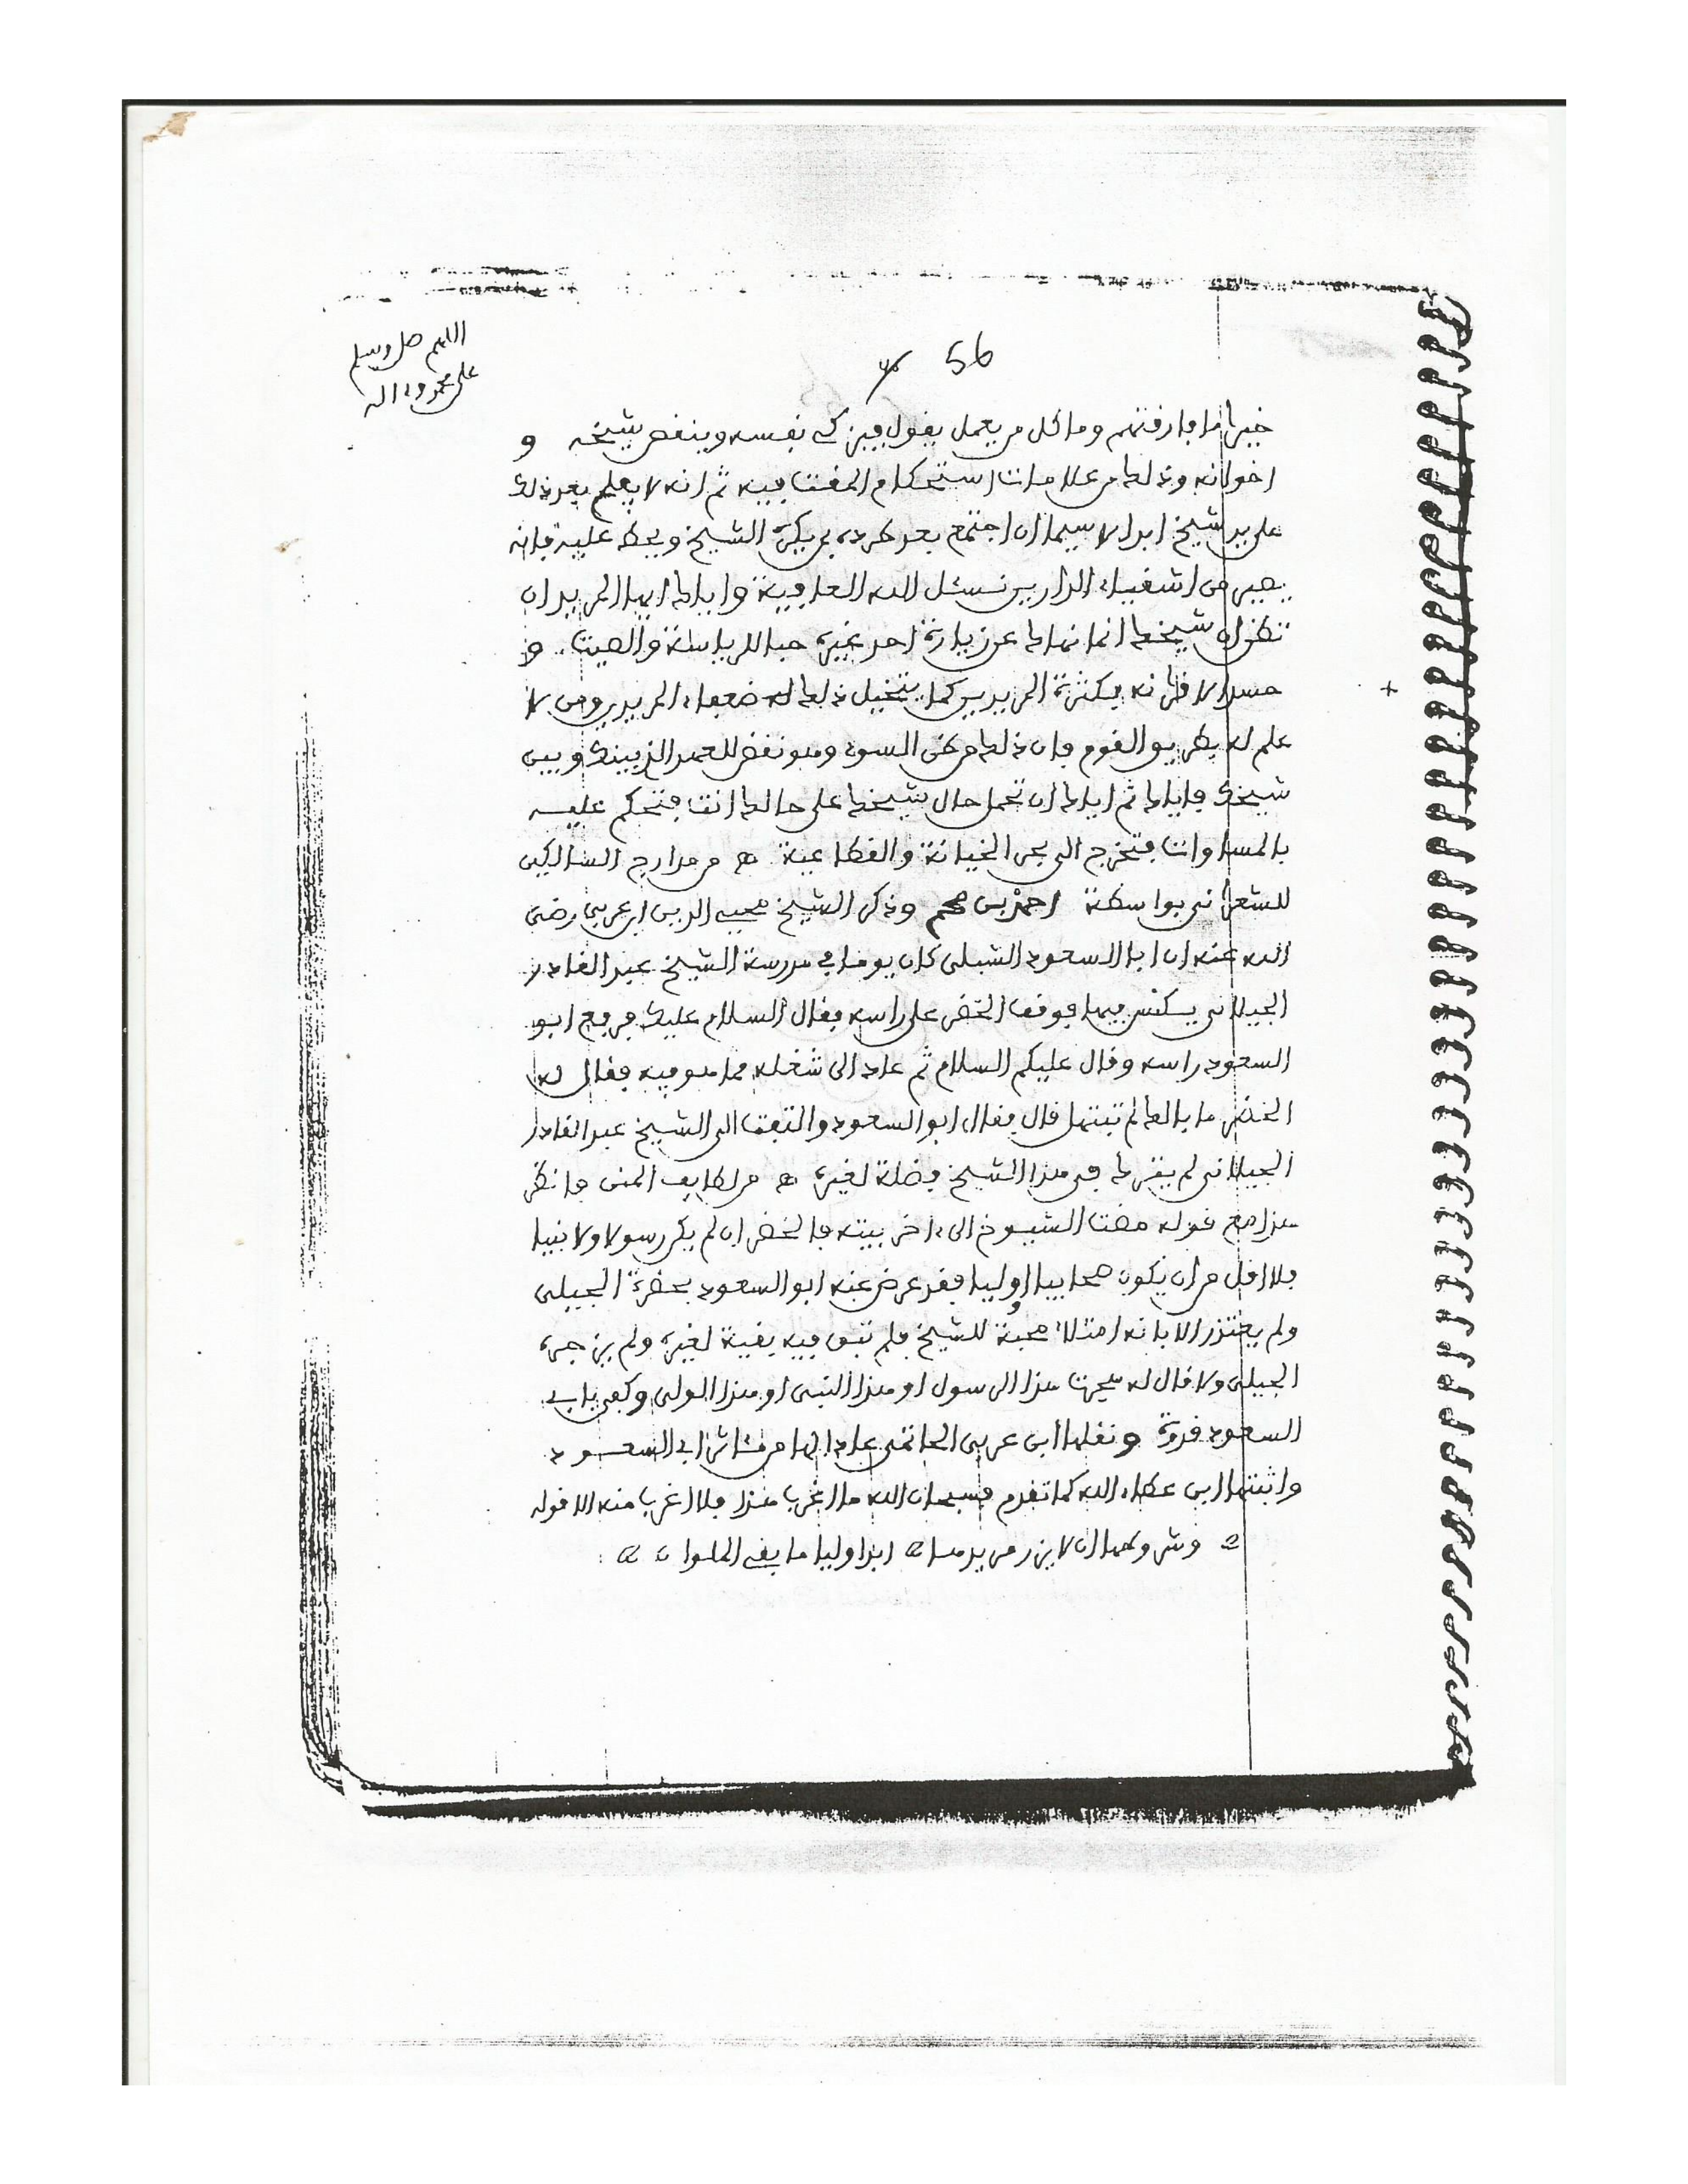 اللهم صل وسلم
على محمد وءاله
56
خيرا ما فارقتهم وما كل من يعمل يقول فيزكي نفسه وينقص شيخه و
اخوانه وذلك من علامات استحكام المقت فيه ثم انه لا يفلح بعد ذلك
على يد شيخ ابدا لا سيما ان اجتمع بعد طرده بمن يكره الشيخ ويحط عليه فإنه
يصير من اشقياء الدارين نسئل الله العافية واياك ايها المريد ان
تظن ان شيخك انما نهاك عن زيارة احد غيره حبا للرياسة والصيت و
حسدا لاقرانه بكثرة المريدين كما يتخيل ذلك له ضعفاء المريدين ومن لا
علم له بطريق القوم فان ذلك من ظن السوء وهو نقض للعهد الذي بينك وبين
شيخك فاياك ثم اياك ان تحمل حال شيخك على حالك انت فتحكم عليه
بالمساوات فتخرج الى بحر الخيانة والقطاعية ھ من مدارج السالكين
للشعراني بواسطة احمد بن محم وذكر الشيخ محيي الدين ابن عربي رضي
الله عنه ان ابا السعود الشبلي كان يوما في مدرسة الشيخ عبد القادر
الجيلاني يكنس فيها فوقف الخضر على راسه فقال السلام عليك فرفع ابو
السعود راسه وقال عليكم السلام ثم عاد الى شغله مما هو فيه فقال له
الخضر ما بالك لم تنتهل قال فقال ابو السعود والتفت الى الشيخ عبد القادر
الجيلاني لم يترك في هذا الشيخ فضلة لغيره ھ من لطايف المنن فانظر
هذا مع قوله مقت الشيوخ الى ءاخر بيته فالخضر ان لم يكن رسولا ولا نبيا
فلا اقل من ان يكون صحابيا او وليا فقد عرض عنه ابو السعود بحضرة الجيلي
ولم يعتذر الا بانه امتلأ محبة للشيخ فلم تبق فيه بقية لغيره ولم يزجره
الجيلي ولا قال له هذا الرسول او هذا النبي او هذا الولي وكفى بابي
السعود قدوة ونقلها ابن عربي الحاتمي عادا لها من مئاثر ابي السعود
واثبتها ابن عطاء الله كما تقدم فسبحان الله ما اغرب هذا فلا اغرب منه الا قوله
وشروطها ان لا يزر مريدها ابدا وليا ما بقي الملوان